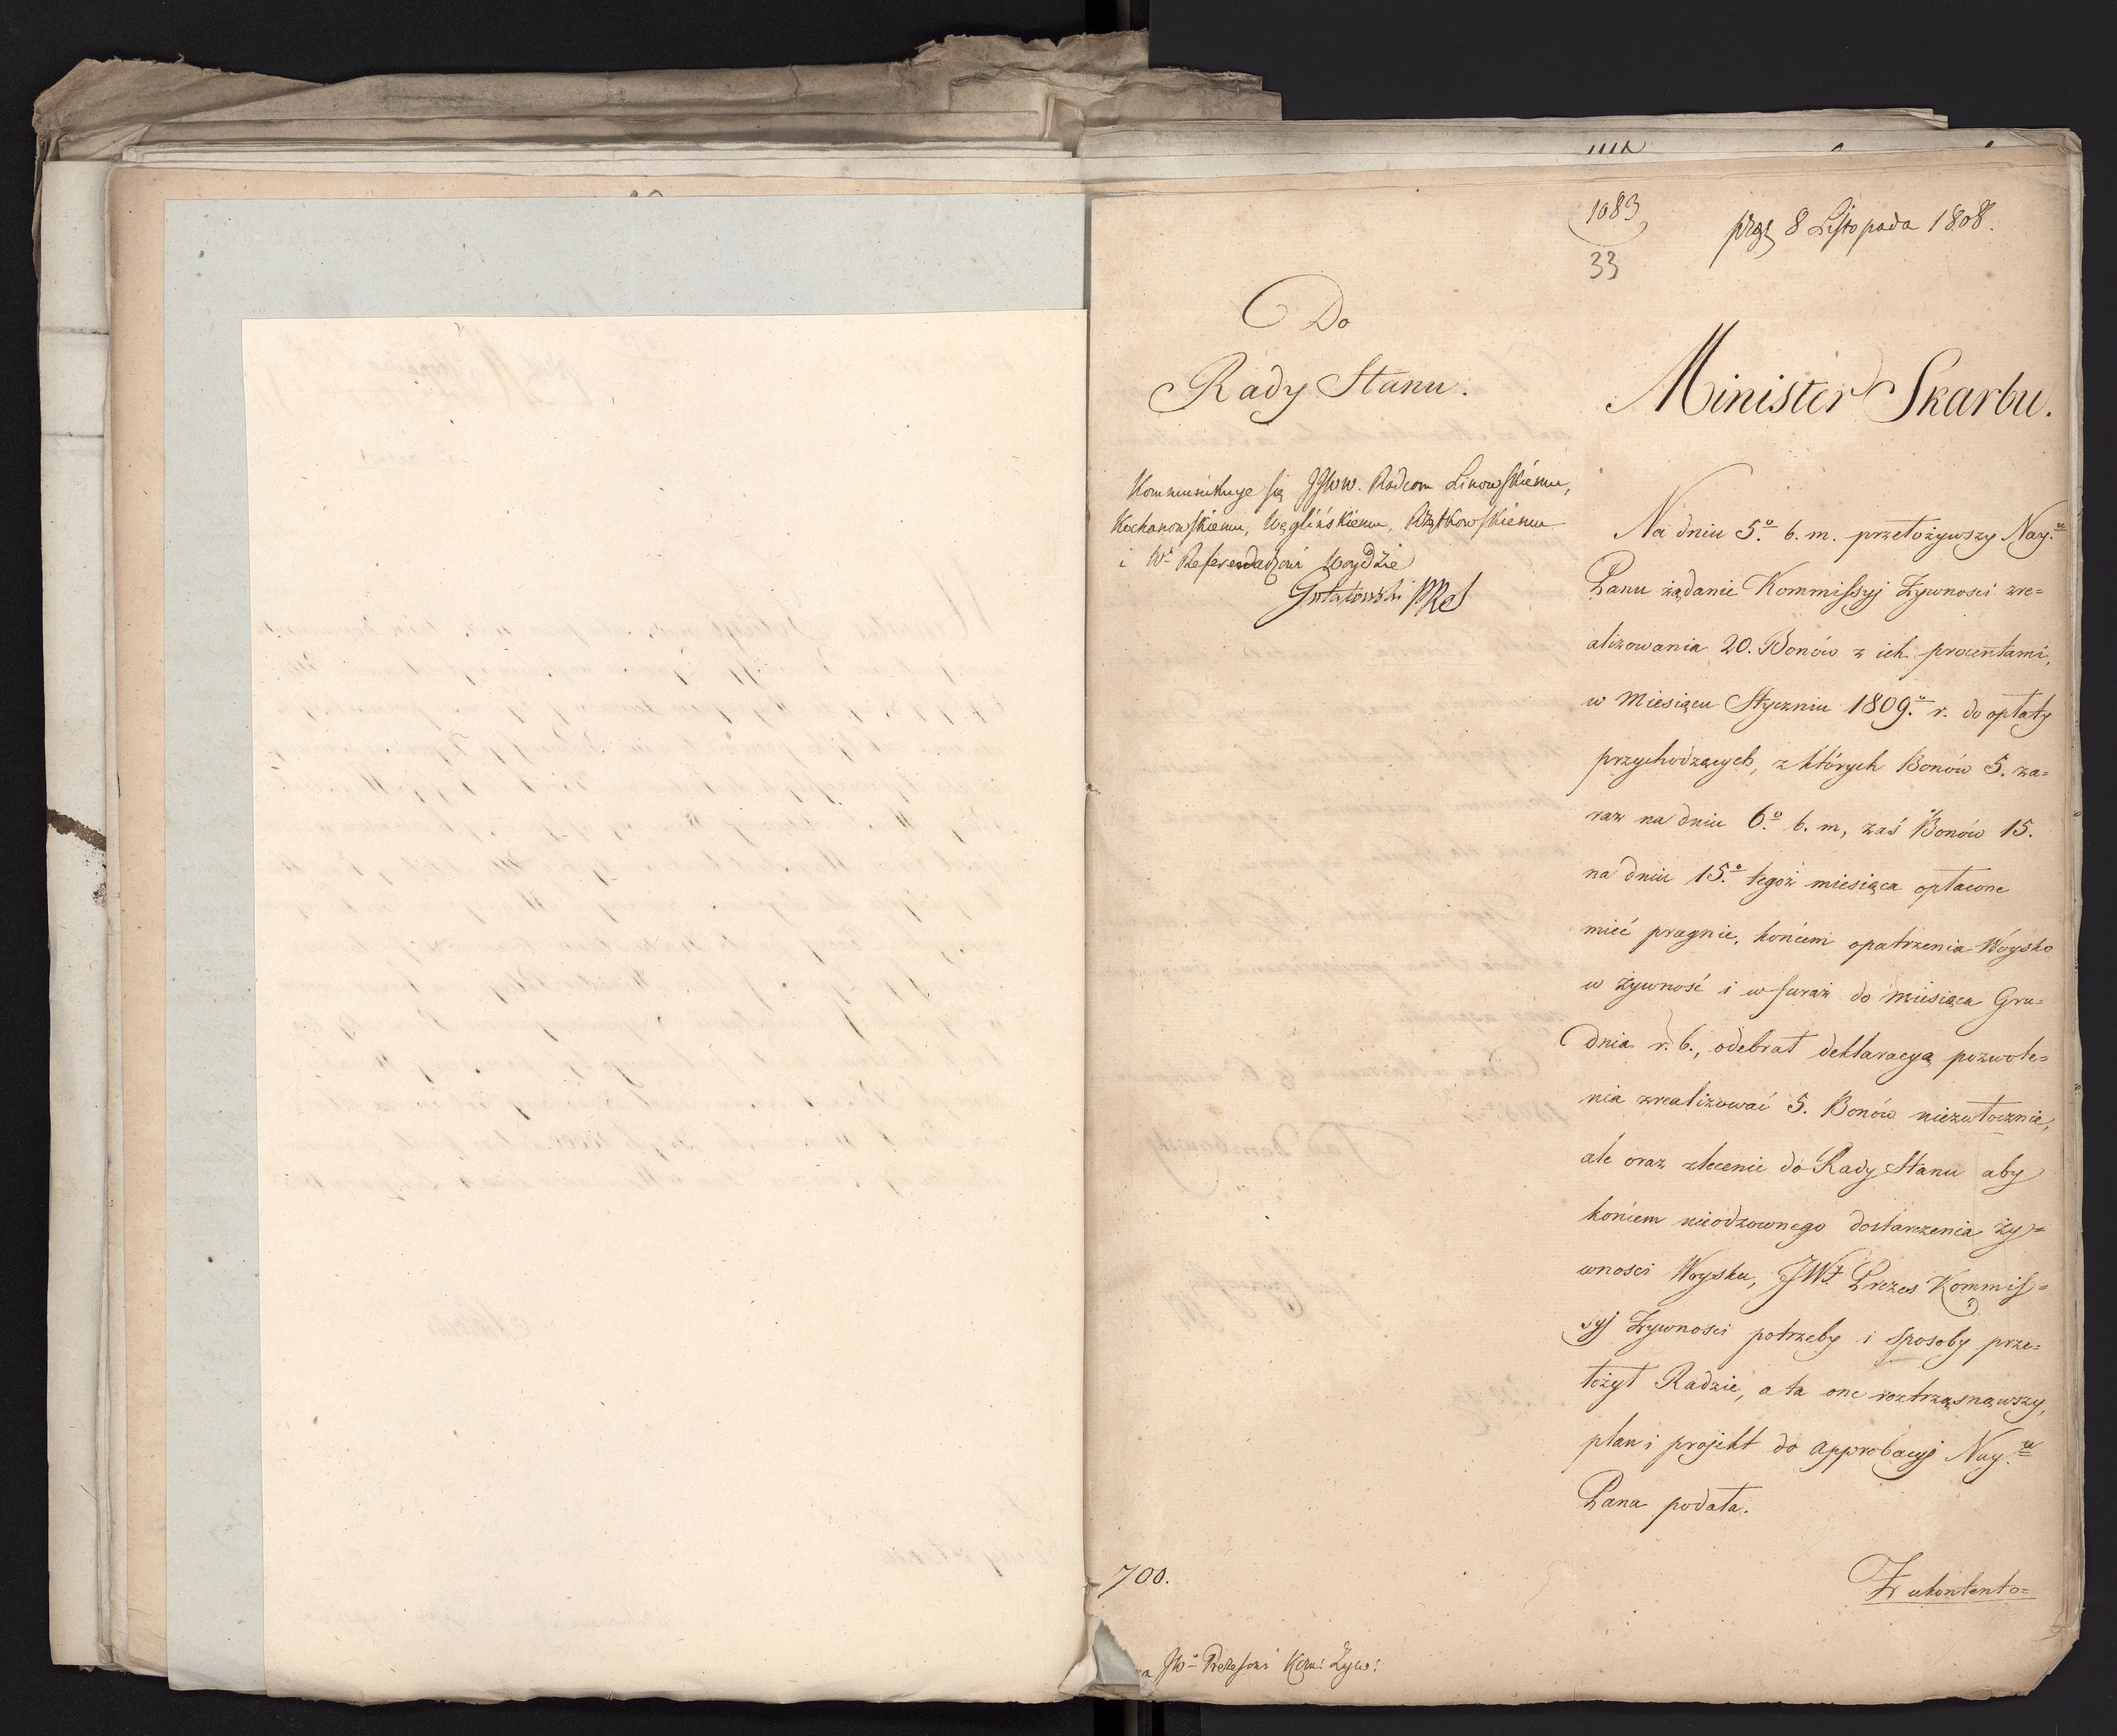 1083
33
8 Listopada 1808.
Do
Rady Stanu.
Kommunikuje się JJWW. Radcom Linowskiemu,
Kochanowskiemu, Węglińskiemu, Wyczechowskiemu
i Wu Referendarzowi Woydzie
Gutakowski PRS
Minister Skarbu.
Na dniu 5.o b. m. przełożywszy Nay.u
Panu żądanie Kommissyj Żywnosci zre=
alizowania 20. Bonów z ich procentami,
w Miesiącu Styczniu 1809.o r. do opłaty
przychodzących, z których Bonów 5. za=
raz na dniu 6.o b. m, zaś Bonów 15.
na dniu 15.o tegoż miesiąca opłacone
mieć pragnie, końcem opatrzenia Woysko
w żywność i w furaż do miesiąca Gru=
dnia r. b., odebrał deklaracyą pozwole=
nia zrealizować 5. Bonów niezwłocznie,
ale oraz zlecenie do Rady Stanu aby
końcem nieodzownego dostarczenia ży=
wnosci Woysku, JW. Prezes Kommis=
syj Żywnosci potrzeby i sposoby prze=
łożył Radzie, a ta one roztrząsnąwszy,
plan i projekt do approbacyj Nay.o
Pana podała.
Z ukontento=
700.
JWo Prezesowi Kom: Żyw: